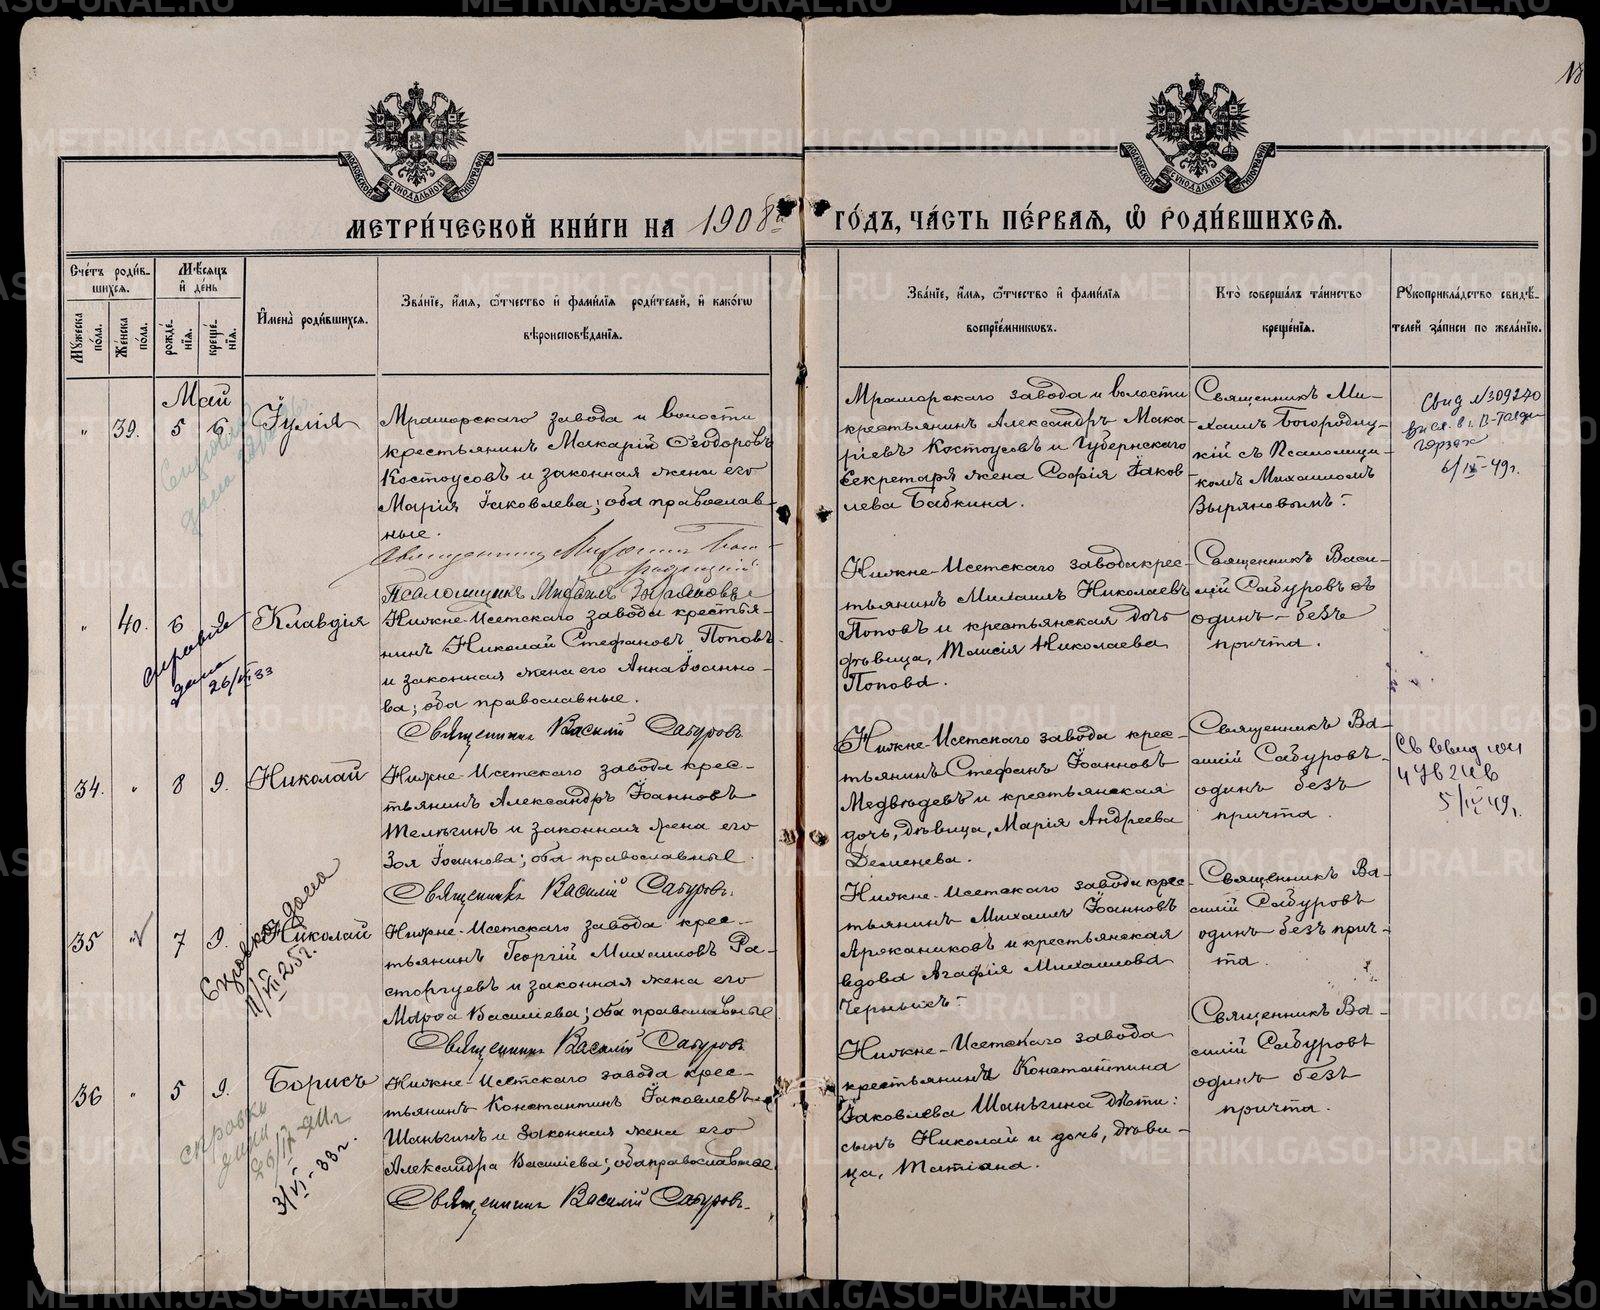 18
МЕТРИ́ЧЕСКОЙ КНИ́ГИ НА 1908й ГО́ДЪ, ЧА́СТЬ ПЕ́РВАЯ, Ѽ РОДИ́ВШИХСЯ.
Сче́тъ роди́в-
шихся.
Мѣ́сяцъ
и҆ де́нь
Мꙋ́жеска по́ла.
Же́нска по́ла.
рожде́-
нїя.
креще́-
нїя.
И҆мена̀ роди́вшихся.
Зва́нїе, и҆́мя, ѻ҆́тчество и҆ фами́лїя роди́телей, и҆ како́гѡ
вѣроисповѣ́данїя.
Зва́нїе, и҆́мя, ѻ҆́тчество и҆ фами́лїя
воспрїе́мниковъ.
Кто̀ соверша́лъ та́инство
креще́нїя.
Рꙋкоприкла́дство свидѣ́-
телей за́писи по жела́нїю.
Май
" 39. 5 6 Іулія
Мраморскаго завода и волости
крестьянинъ Макарій Ѳеодоровъ
Костоусовъ и законная жена его
Марія Іаковлева; оба православ-
ные.
Священникъ Михаилъ Бого-
родицкій
Псаломщикъ Михаилъ Зыряновъ
Мраморскаго завода и волости
крестьянинъ Александръ Мака
ріевъ Костоусовъ и Губернскаго
Секретаря жена Софія Іаков-
лева Бабкина.
Священникъ Ми-
хаилъ Богородиц-
кій съ Псаломщи-
комъ Михаиломъ
Зыряновымъ.
Свид №309270
6/IV-49г.
" 40. 6 Клавдія
справка
дана
26/VI 33
Нижне-Исетскаго завода крестья-
нинъ Николай Стефановъ Поповъ
и законная жена его Анна Іоанно-
ва; оба православные.
Священникъ Василій Сабуровъ
Нижне-Исетскаго завода крес-
тьянинъ Михаилъ Николаевъ
Поповъ и крестьянская дочь
дѣвица, Таисія Николаева
Попова.
Священникъ Васи-
лій Сабуровъ
одинъ - безъ
причта.
34. " 8 9. Николай
Нижне-Исетскаго завода крес-
тьянинъ Александръ Іоанновъ
Телѣгинъ и законная жена его
Зоя Іоаннова; оба православные.
Священникъ Василій Сабуровъ.
Нижне-Исетскаго завода крес-
тьянинъ Стефанъ Іоанновъ
Медвѣдевъ и крестьянская
дочь, дѣвица, Марія Андреева
Деменева.
Священникъ Ва-
силій Сабуровъ-
одинъ безъ
причта.
5/IV 49г.
35 " 7 9. Николай
дана
11/VII 25г.
Нижне-Исетскаго завода крес-
тьянинъ Георгій Михаиловъ Ра-
сторгуевъ и законная жена его
Марѳа Василіева; оба православные
Священникъ Василій Сабуровъ
Нижне-Исетскаго завода крес-
тьянинъ Михаилъ Іоанновъ
Аржаниковъ и крестьянская
вдова Агафія Михаилова
Черныхъ-
Священникъ Ва-
силій Сабуровъ
одинъ безъ прич-
та.
36 " 5 9. Борисъ
справка
дана
3/VI-33г.
Нижне-Исетскаго завода крес-
тьянинъ Константинъ Іаковлевъ
Шаньгинъ и законная жена его
Александра Василіева; оба православные.
Священникъ Василій Сабуровъ.
Нижне-Исетскаго завода
крестьянина Константина
Іаковлева Шаньгина дѣти:
сынъ Николай и дочь, дѣви-
ца, Татіана.
Священникъ Ва-
силій Сабуровъ
одинъ безъ
причта.
METRIKI.GASO-URAL.RU